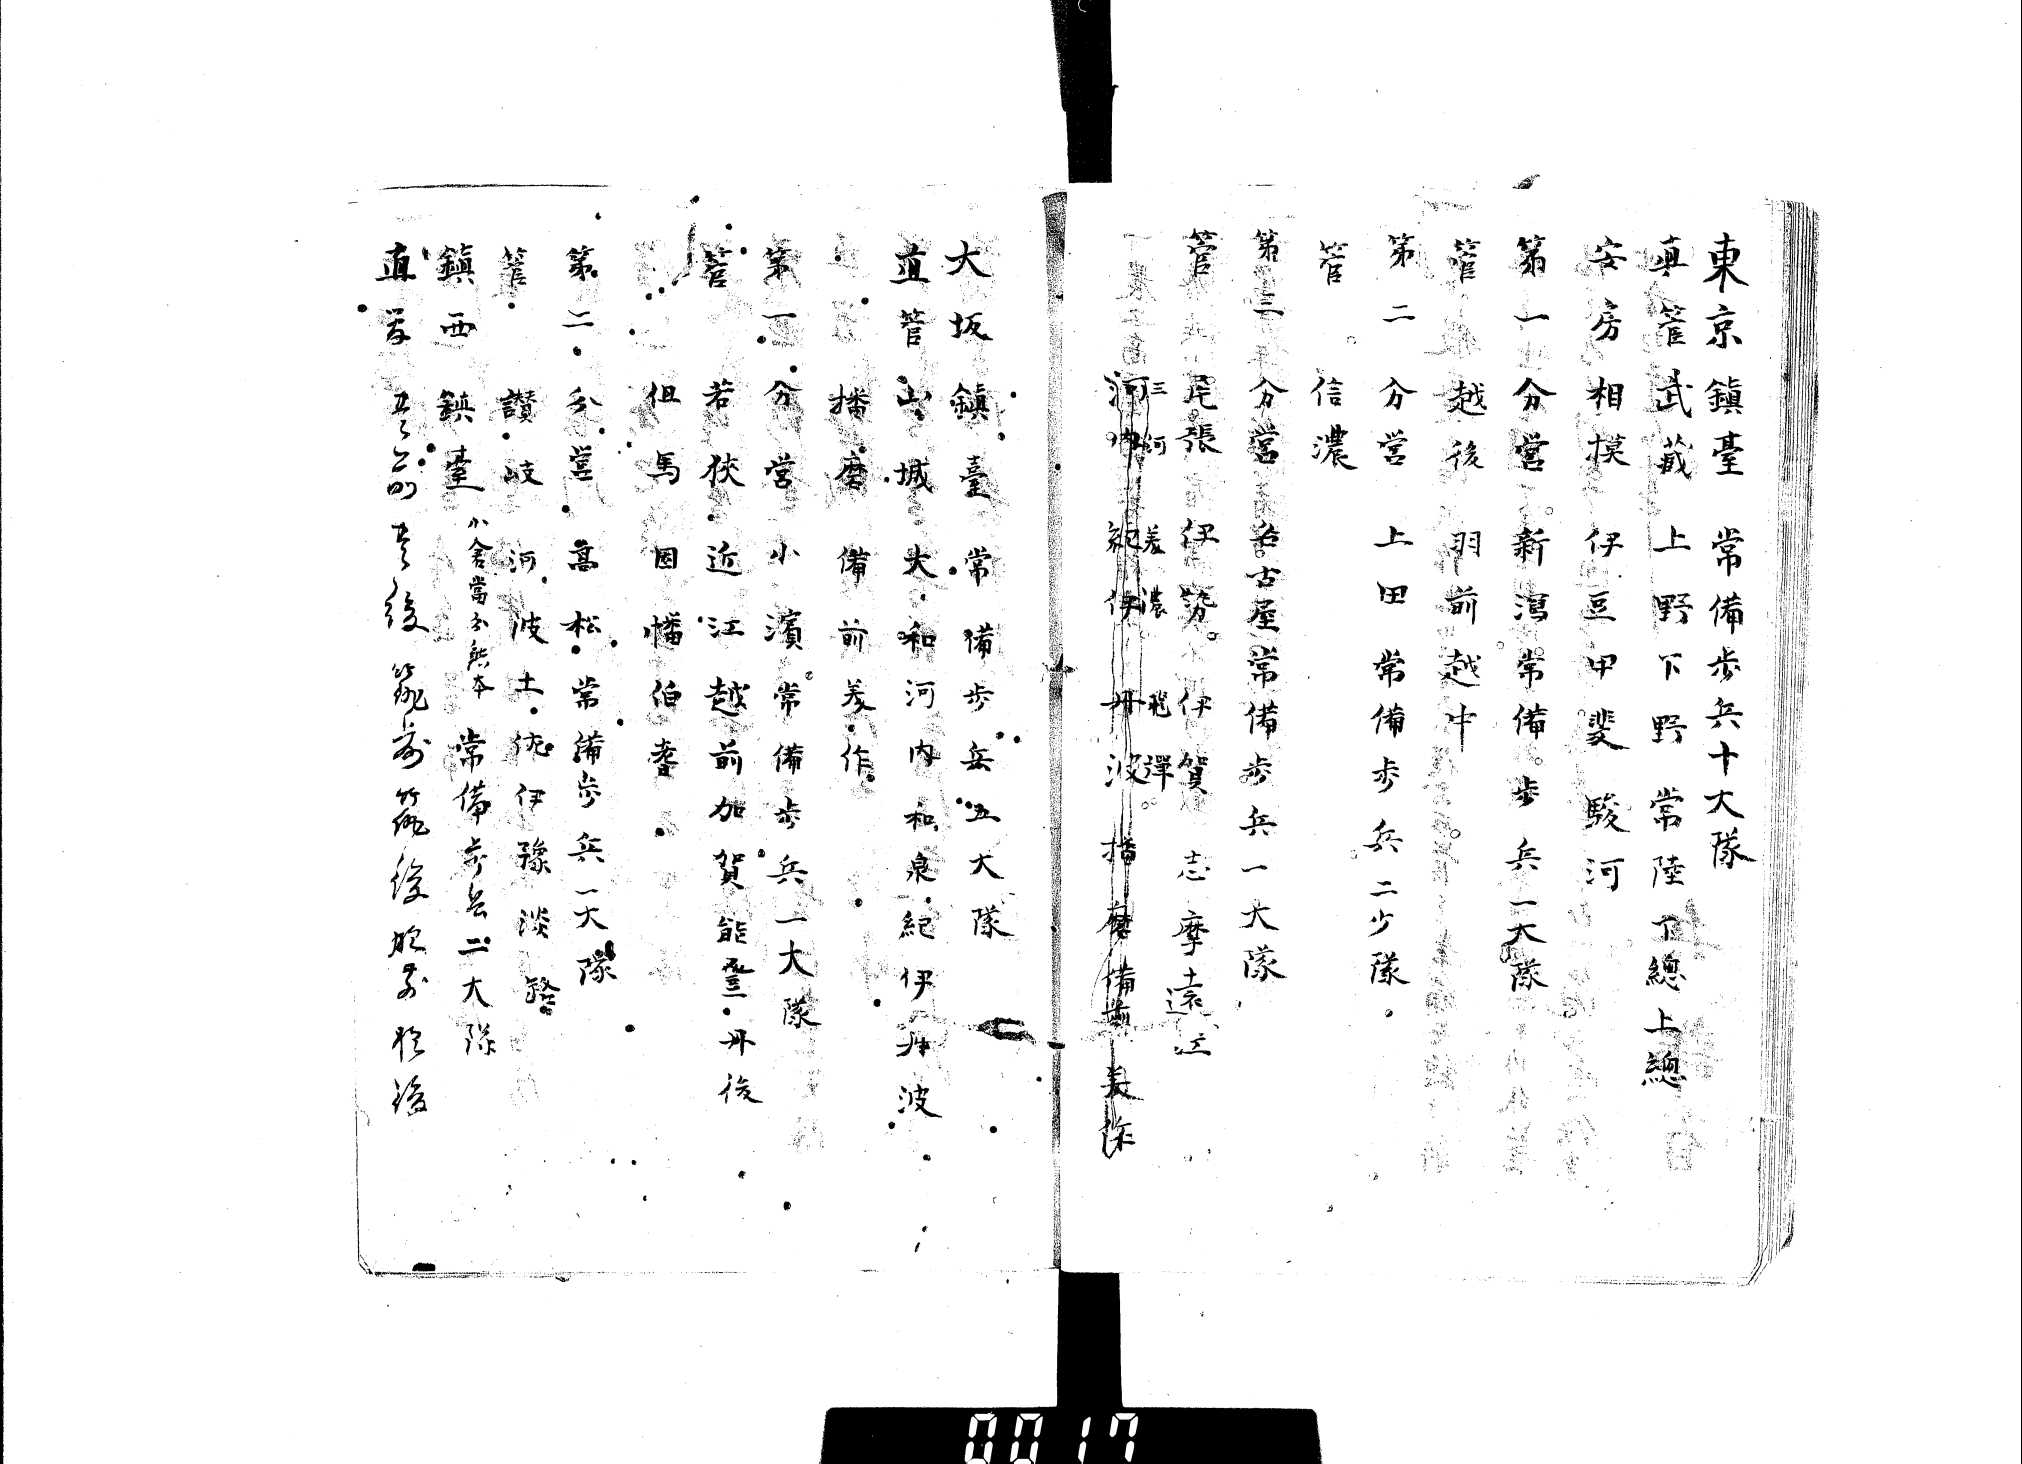 東京鎮臺 常備歩兵十大隊
直管武蔵 上野下野常陸下總上總
安房相模伊豆甲斐駿河
第一分営 新潟常備歩兵一大隊
管 越後 羽前越中
第二分営 上田常備歩兵二少隊
管 信濃
第三分営 名古屋常備歩兵一大隊
管 尾張 伊勢 伊賀 志摩 遠江
三河 美濃 飛騨
河内 紀伊 丹波 播磨 備前 美作
大坂鎮臺 常備歩兵五大隊
直管山城大和河内和泉紀伊丹波
播磨備前美作
第一分営小濱常備歩兵一大隊
管 若狭近江越前加賀能登丹後
但馬因幡伯耆
第二分営 高松常備歩兵一大隊
管 讃岐河波土佐伊豫淡路
鎮西鎮臺 小倉當分熊本 常備歩兵二大隊
直管 豊前豊後筑前筑後肥前肥後
0017